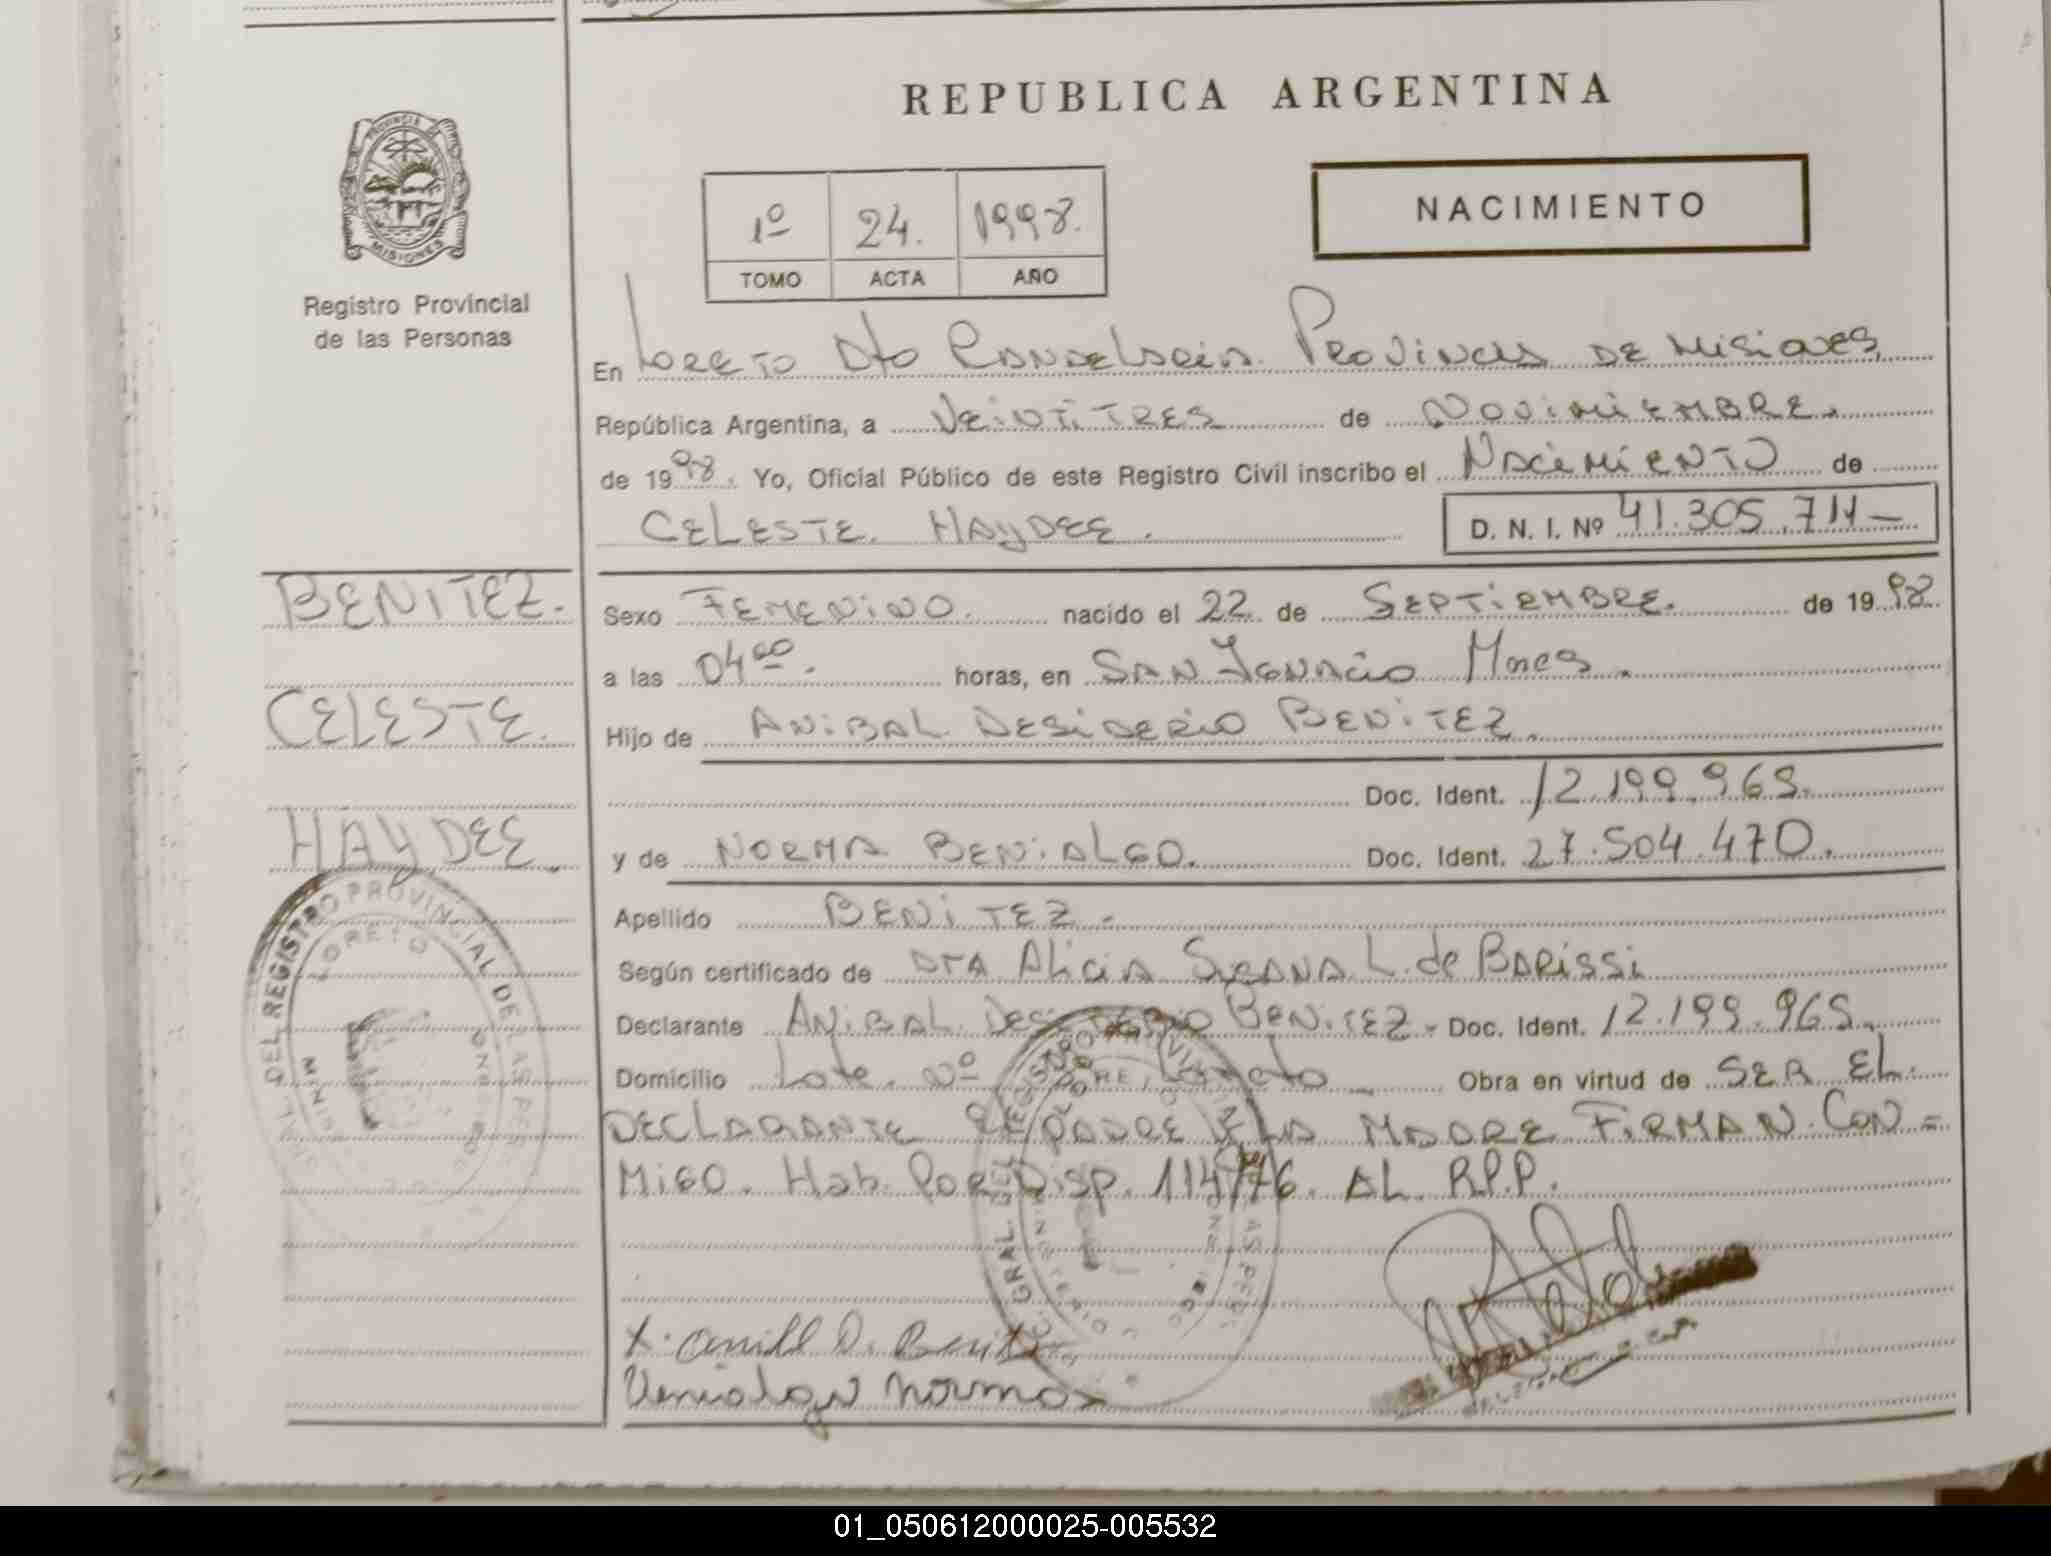 REPUBLICA ARGENTINA
PROVINCIA
MISIONES
Registro Provincial
de las Personas
1º 24. 1998.
TOMO ACTA AÑO
NACIMIENTO
En LORETO Dto CANDELARIA. PROVINCIA DE MISIONES,
República Argentina, a VEINTITRES de NOVIMIEMBRE.
de 1998. Yo, Oficial Público de este Registro Civil inscribo el NACIMIENTO de
CELESTE. HAYDEE. D. N. I. Nº 41.305.711-
BENITEZ.
CELESTE.
HAYDEE.
Sexo FEMENINO. nacido el 22 de SEPTIEMBRE. de 1998
a las 04 00. horas, en SAN IGNACIO Mnes.
Hijo de ANIBAL DESIDERIO BENITEZ.
Doc. Ident. 12.199.965.
y de NORMA BENIALGO. Doc. Ident. 27.504.470.
Apellido BENITEZ.
Según certificado de DRA ALICIA L. de BARISSI
Declarante ANIBAL DESIDERIO BENITEZ. Doc. Ident. 12.199.965.
Domicilio Lote Nº Loreto Obra en virtud de SER EL
DECLARANTE EL PADRE Y LA MADRE FIRMAN. CON=
MIGO. Hab. POR Disp. 114/76. AL. R.P.P.
DEL REGISTRO PROVINCIAL DE LAS PER
LORETO
GRAL DEL REGISTRO
X. D. Benitez
Venialgo Norma
01_050612000025-005532